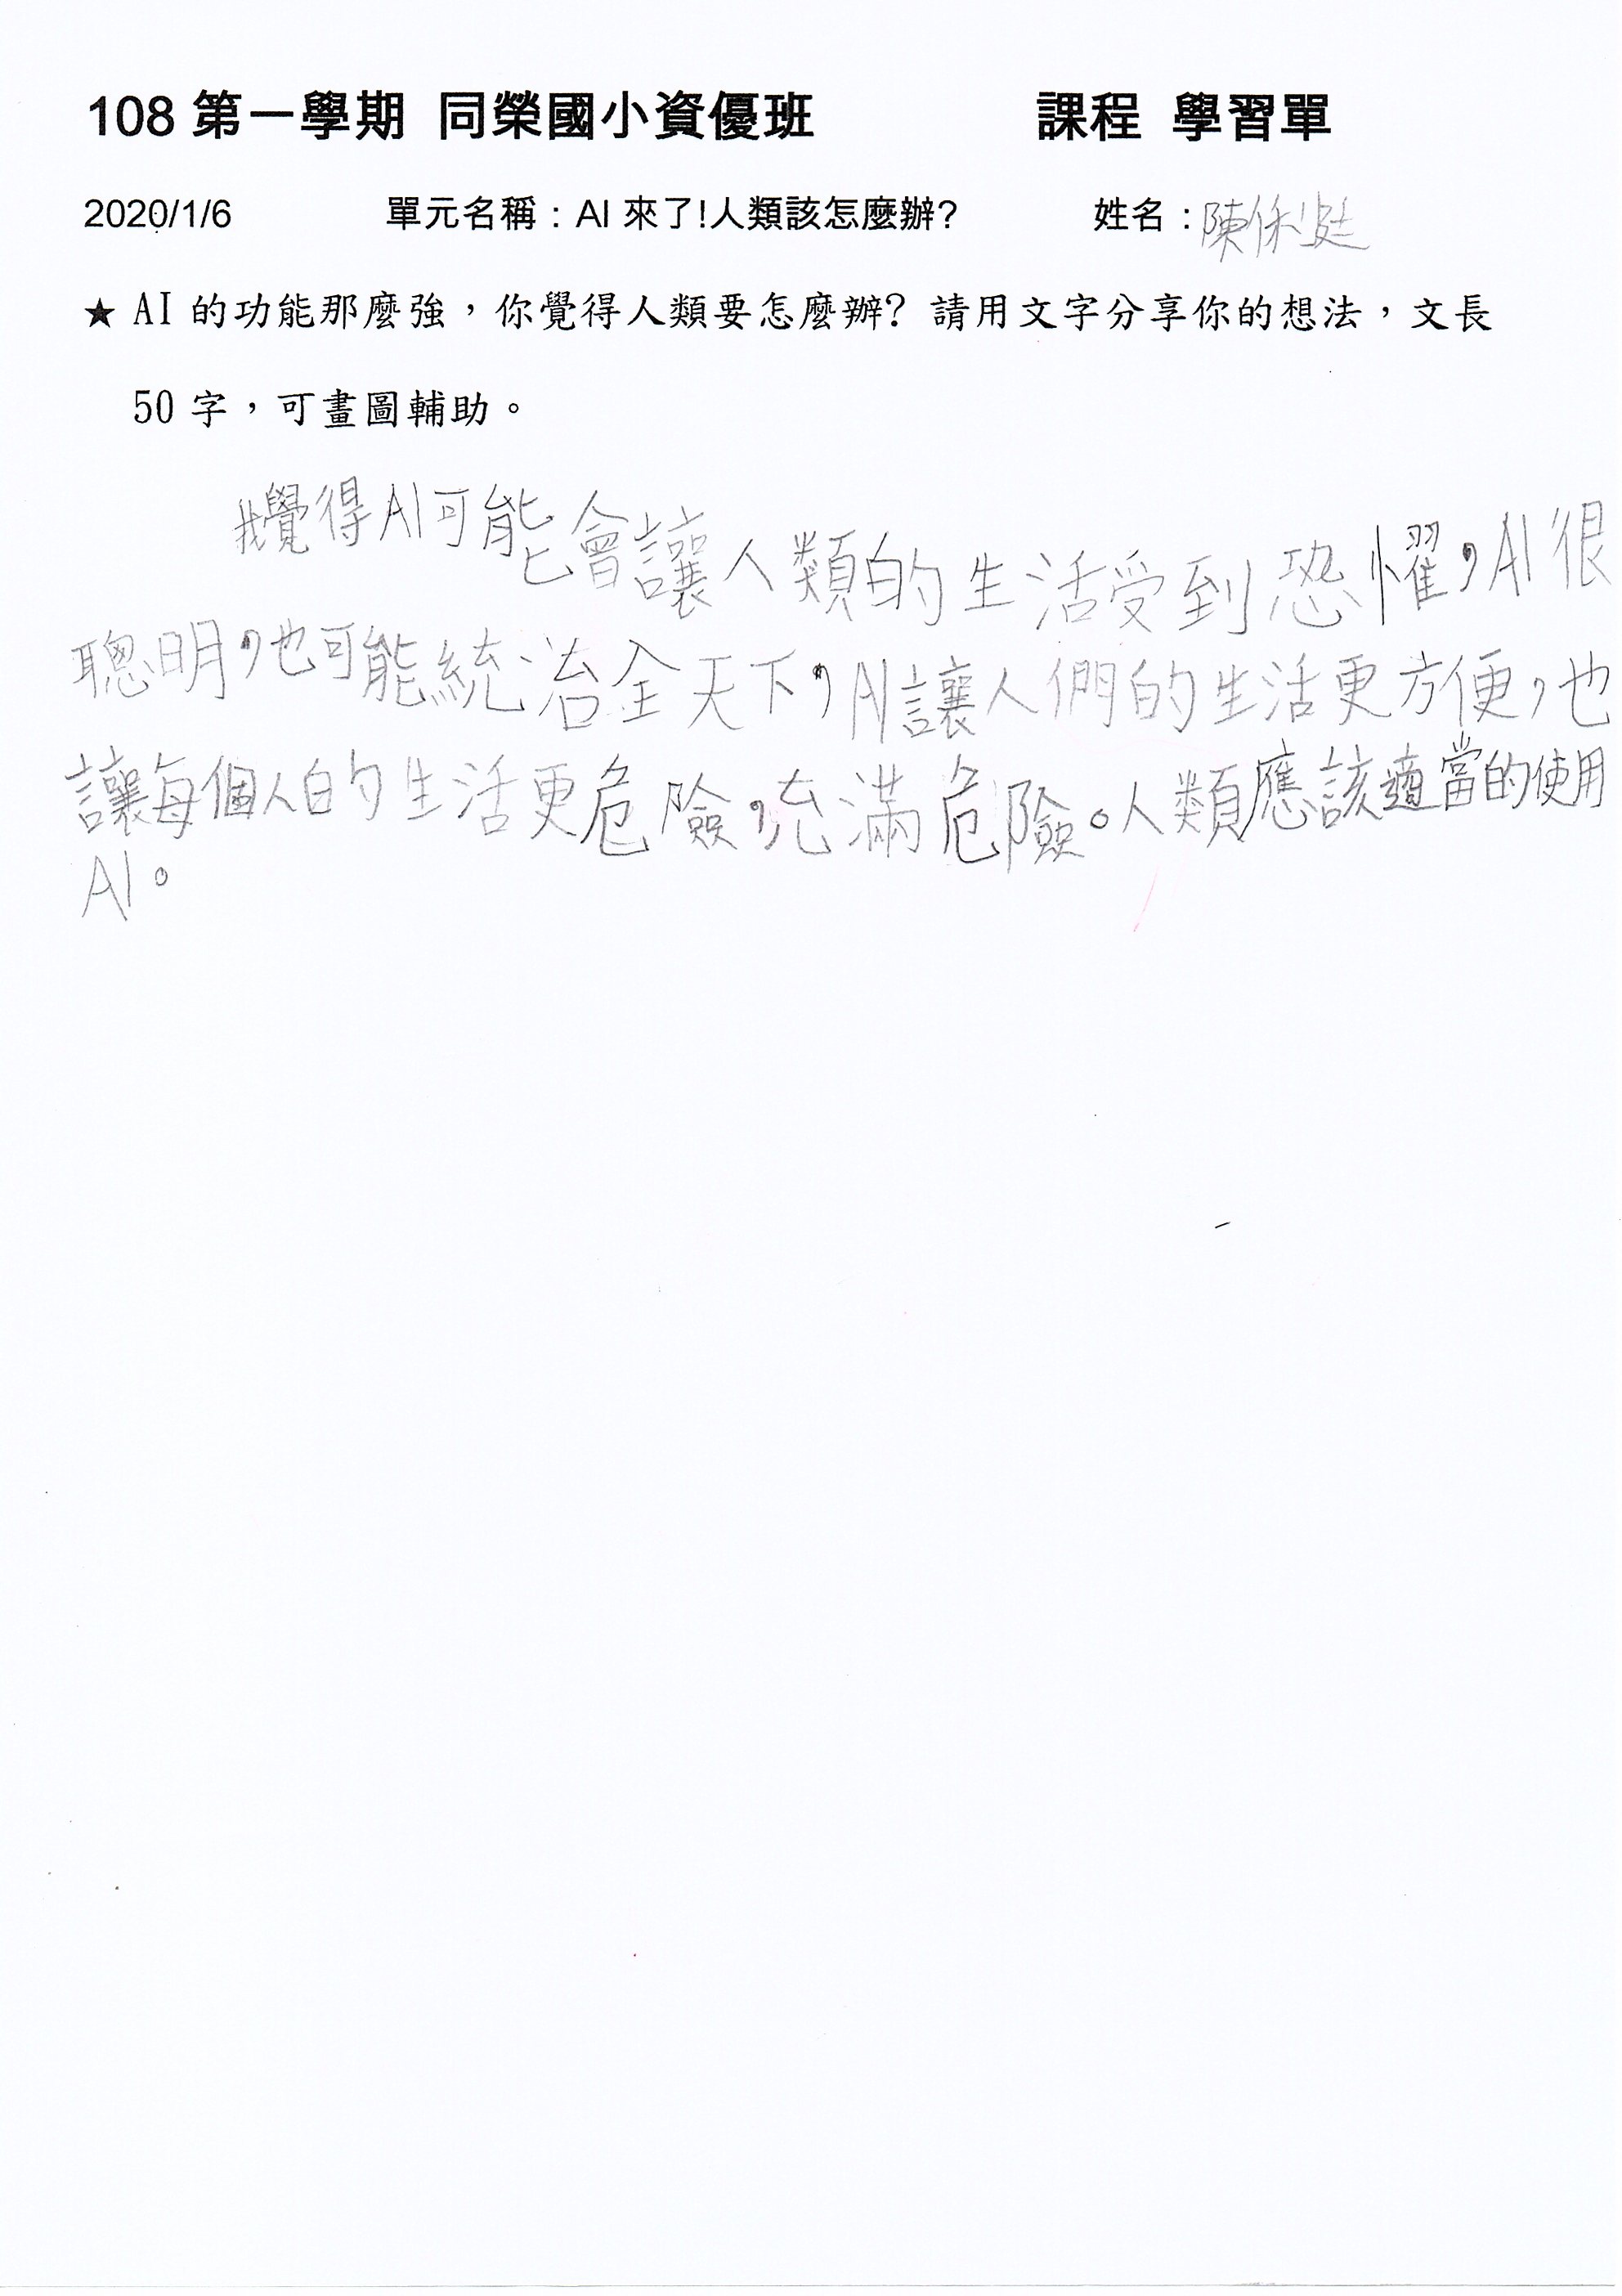 108 第一學期 同榮國小資優班 課程 學習單
2020/1/6 單元名稱：AI 來了!人類該怎麼辦? 姓名：陳
★ AI 的功能那麼強，你覺得人類要怎麼辦? 請用文字分享你的想法，文長
50 字，可畫圖輔助。
我覺得AI可能會讓人類的生活受到恐懼，AI很
聰明，也可能統治全天下，AI讓人們的生活更方便，也
讓每個人的生活更危險，充滿危險。人類應該適當的使用
AI。